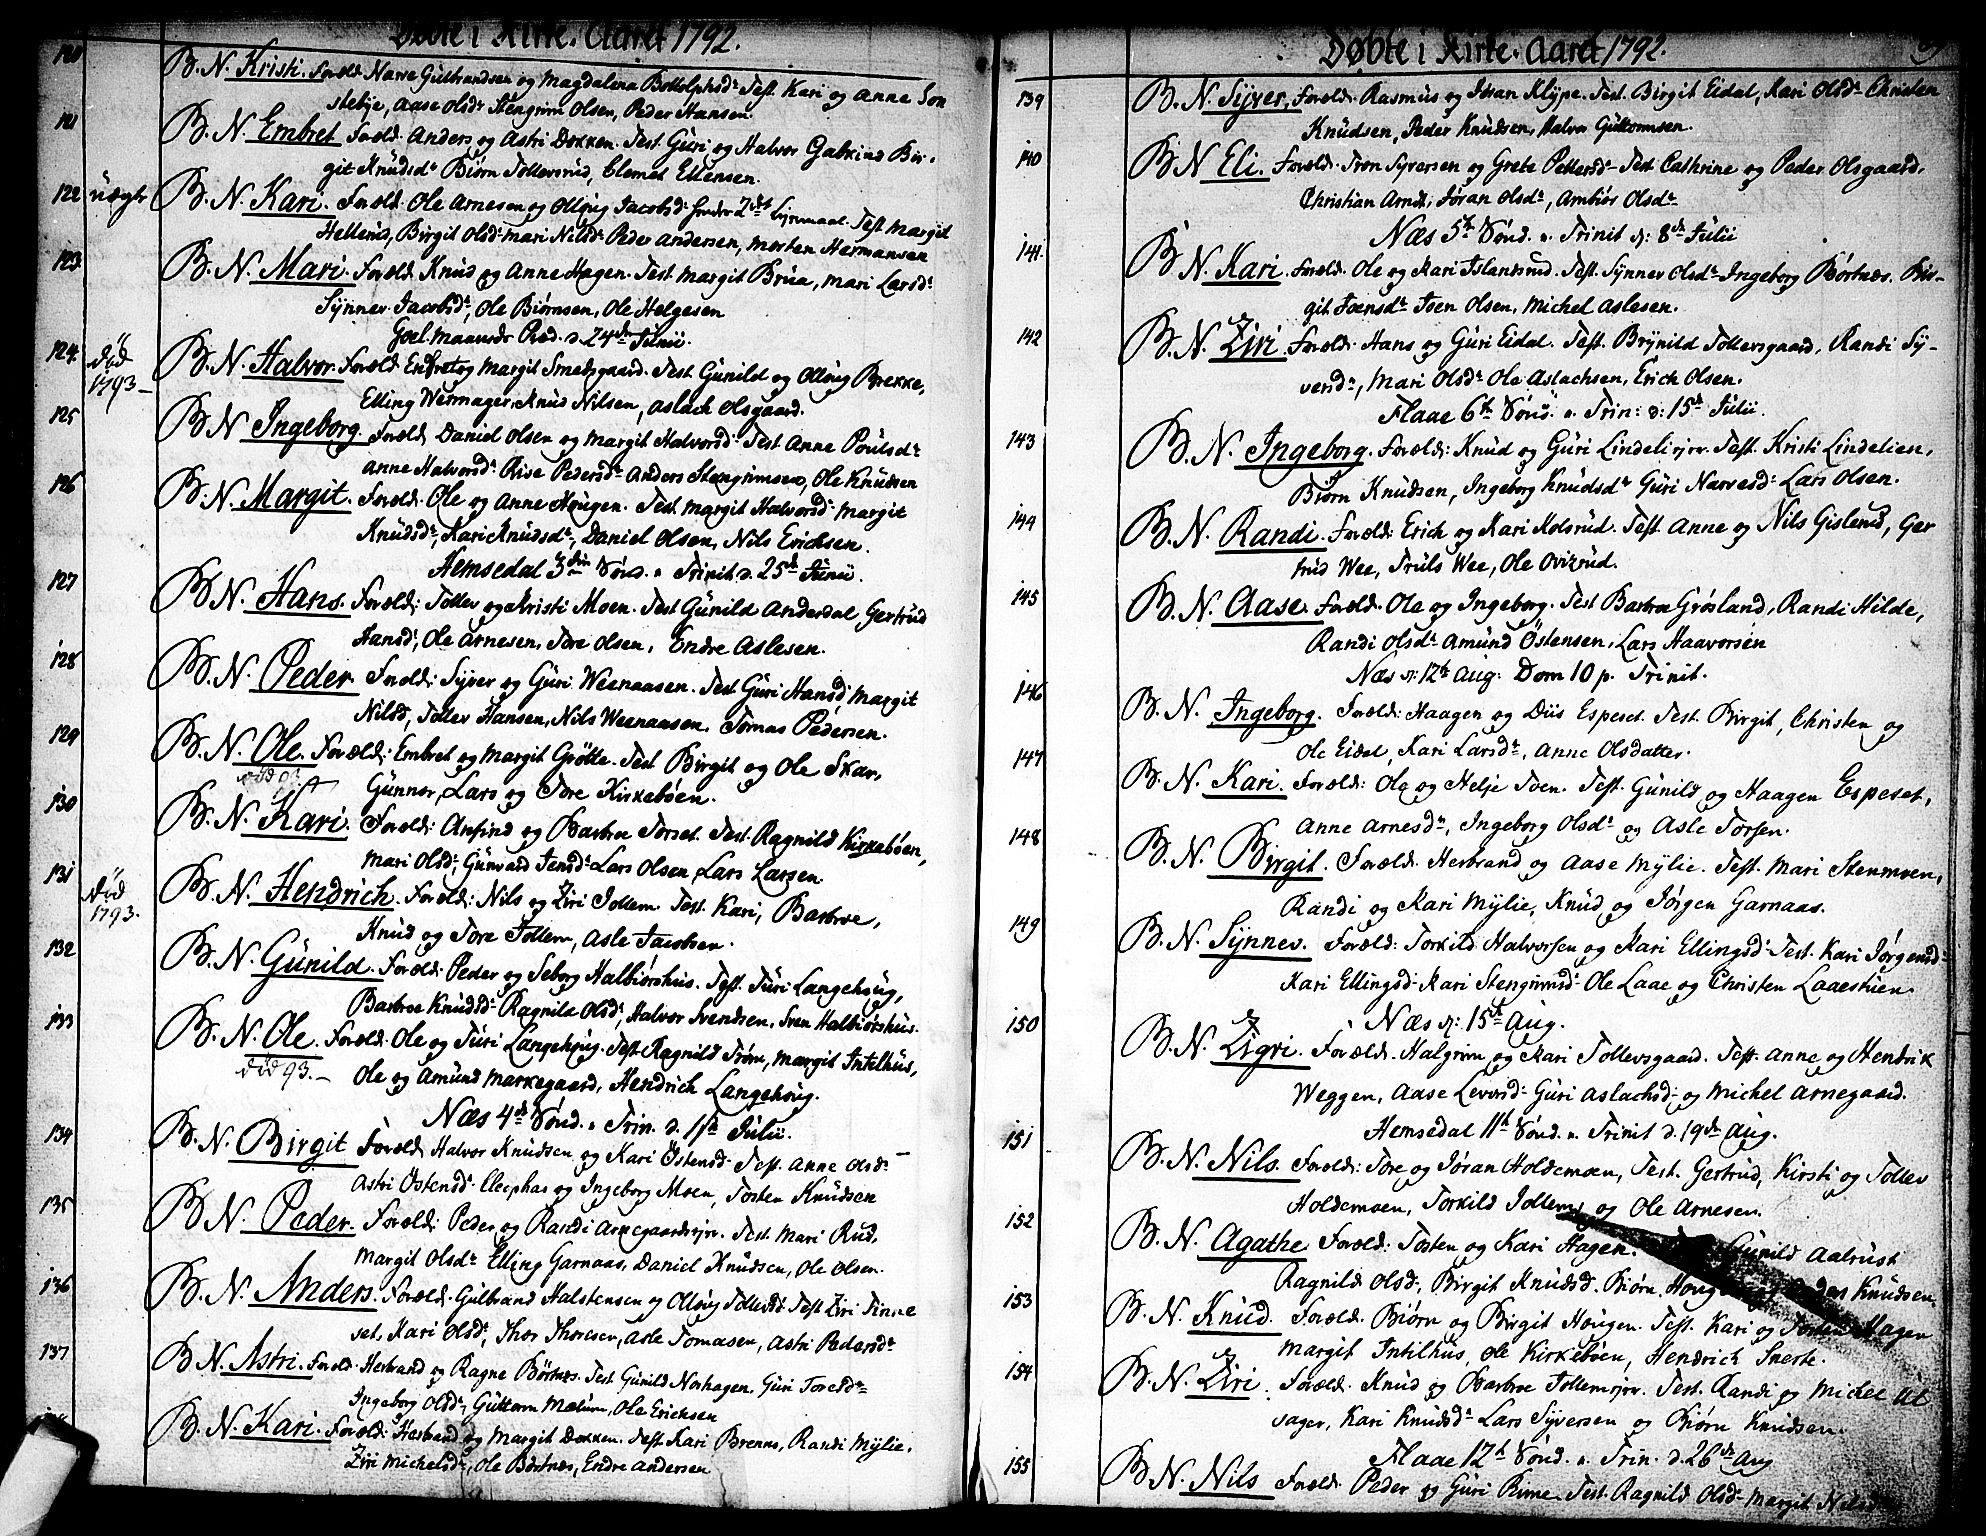 Døbte i Kirke. Aaret 1792.
120 B. N. Kristi. Foræld. Narve Gulbrandsen og Magdalena Bottolphsd. Test. Kari og Anne Son
stebye, Aase Olsd. Stengrim Olsen, Peder Hansen.
121 B. N. Embret Foræld. Anders og Astri Dokken. Test. Guri og Halvor Bir-
git Knudsd. Biørn Tollevsrud, Clemet Ellensen.
122 uægte B. N. Kari. Foræld. Ole Arnesen og Olloug Jacobsd. 2det Test Margit
Hellerud, Birgit Olsd. Mari Nilsd. Peder Andersen, Morten Hermansen
123. B. N. Mari. Foræld. Knud og Anne Hagen. Test. Margit Brua, Mari Larsd.
Synnev Jacobsd. Ole Biørnsen, Ole Helgesen
Goel. d. 24de Junii.
124. død 1793 - B. N. Halvor. Foræld. Endre og Margit Smedsgaard. Test. Gunild og Olloug Brekke,
Elling Wermager, Knud Nilsen, Aslach Olsgaard.
125 B N Ingeborg Foræld. Daniel Olsen og Margit Halvorsd. Test Anne Poulsd.
Anne Halvorsd. Rise Pedersd. Anders Stengrimsen, Ole Knudsen
126 B. N. Margit. Foræld. Ole og Anne Hougen. Test. Margit Halvorsd. Margit
Knudsd., Kari Knudsd., Daniel Olsen, Nils Erichsen.
Hemsedal 3die Sønd. Trinit d. 25de Junii.
127 B N. Hans. Foræld: Tollev og Kristi Moen. Test Gunild Anderdal, Gertrud
Hansd, Ole Arnesen, Tore Olsen, Endre Aslesen.
128 B. N Peder Foræld: Syver og Guri Weenaasen. Test Guri Hansd, Margit
Nilsd, Tollev Hansen, Nils Weenaasen. Tomas Pedersen.
129 B. N. Ole. Foræld: Embret og Margit Grøtte. Test Birgit og Ole Skar,
død 93
Gunnor, Lars og Tore Kirkebøen.
130 B. N. Kari. Foræld: Anfind og Barbroe Torset. Test. Ragnild Kirkebøen,
Mari Olsd. Gunvald Jensd. Lars Olsen, Lars Larsen.
131 død 1793. B. N. Hendrich. Foræld: Nils og Ziri Jollem. Test. Kari, Barbroe,
Knud og Tore Jollem, Asle Jacobsen.
132 B. N. Gunild. Foræld: Peder og Seborg Halbiørshus. Test. Turi Langehoug,
Barbroe Knudsd. Ragnild Olsd, Halvor Svendsen. Sven Halbiørshus.
133 B. N. Ole. Foræld. Ole og Turi Langehoug. Test Ragnild Trøm, Margit Intilhus,
død 93. -
Ole og Amund Markegaard, Hendrich Langehoug.
Næs 4de Sønd. Trin. d. 1ste Julii.
134 B. N. Birgit Foræld. Halvor Knudsen og Kari Østensd. Test. Anne Olsd.
Astri Østensd. Eleephas og Ingeborg Moen, Tosten Knudsen
135 B N. Peder. Foræld: Peder og Randi Arnegaardseje. Test. Mari Rud,
Margit Olsd. Elling Garnaas, Daniel Knudsen, Ole Olsen.
136 B. N. Anders. Foræld: Gulbrand Halstensen og Olloug Tollevsd. Test Ziri Tinne
set. Kari Olsd, Thor Thoresen, Asle Tomasen, Astri Pedersd.
137 B N. Astri. Foræld. Herbrand og Ragne Børtnes. Test Gunild Norhagen. Guri Toresd.
Ingeborg Olsd, Guttorm Mælum, Ole Ericksen
B. N. Kari. Foræld. Herbrand og Margit Dokken. Test. Kari Brenno, Randi Mylie.
Ziri Michelsd., Ole Børtnes, Endre Andersen
Døbte i Kirke. Aaret 1792.
139 B. N. Syver, Foræld. Rasmus og Jøran Klype. Test. Birgit Eidal, Kari Olsd. Christen
Knudsen, Peder Knudsen, Halvor Guttormsen.
140 B N Eli. Foræld. Tron Syversen og Grete Pettersd. Test Cathrine og Peder Olsgaard.
Christian Arndt, Jøran Olsd., Ambiør Olsd.
Næs 5te Sønd. Trinit d. 8de Julii
141. B N. Kari Foræld. Ole og Kari Islandsrud. Test. Synnev Olsd. Ingeborg Børtnæs. Bir-
git Joensd. Joen Olsen, Michel Aslesen.
142 B. N. Ziri Foræld. Hans og Guri Eidal. Test. Brynild Tollevsgaard, Randi Sy-
versd., Mari Olsd. Ole Aslachsen, Erich Olsen.
Flaae 6te Sønd. Trin: d: 15de Julii.
143 B. N. Ingeborg. Foræld: Knud og Guri Lindelieje. Test. Kristi Lindelien,
Biørn Knudsen, Ingeborg Knudsd. Guri Narvesd. Lars Olsen.
144 B. N. Randi. Foræld: Erich og Kari Kolsrud. Test. Anne og Nils Gislerud, Ger
trud Wee, Truls Wee, Ole Ovizrud.
145 B. N. Aase. Foræld. Ola og Ingeborg. Test Barbroe Grøsland, Randi Hilde,
Randi Olsd. Amund Østensen, Lars Haavorsen
Næs d: 12te Aug: Dom 10 p. Trinit.
146 B. N. Ingeborg. Foræld: Haagen og Diis Espeset. Test. Birgit, Christen og
Ole Eidal, Kari Larsd., Anne Olsdatter.
147 B. N. Kari. Foræld: Ola og Helje Toen. Test. Gunild og Haagen Espeset,
Anne Arnesd., Ingeborg Olsd. og Asle Torsen.
148 B. N. Birgit. Foræld. Herbrand og Aase Mylie. Test. Mari Stenmoen,
Randi og Kari Mylie, Knud og Jørgen Garnaas.
149 B. N. Synnev. Foræld: Torkild Halvorsen og Kari Ellingsd. Test. Kari Jørgensd.
Kari Ellingsd. Kari Stengrimsd. Ole Laae og Christen Laaestuen.
Næs d: 15de Aug.
150 B. N. Zigri. Foræld. Halgrim og Kari Tollevsgaard. Test. Anne og Hendrik
Weggen, Aase Leversd. Guri Aslachsd. og Michel Arnegaard.
Hemsedal 11te Sønd. Trinit d. 19de Aug.
151 B. N. Nils. Foræld: Tore og Jøran Holdemoen, Test. Gertrud, Kirsti og Tollev
Holdemoen, Torkild Jollem, og Ole Arnesen.
152 B. N. Agathe Foræld: Tosten og Kari Hagen. Gunild Aalrust
Ragnild Olsd, Birgit Knudsd. Biørn Peder Knudsen.
153 B. N. Knud. Foræld. Biørn og Birgit Hougen. Test. Kari og Tosten Hagen
Margit Intilhus, Ole Kirkebøen, Hendrich Snerte.
154 B. N. Ziri. Foræld. Knud og Barbroe Jollemseje. Test. Randi og Michel Ul
sager, Kari Knudsd. Lars Syversen og Biørn Knudsen.
Flaae 12te Sønd. Trin. d. 26de Aug
155 B N. Nils Foræld. Peder og Guri Rime. Test. Ragnild Olsd. Margit